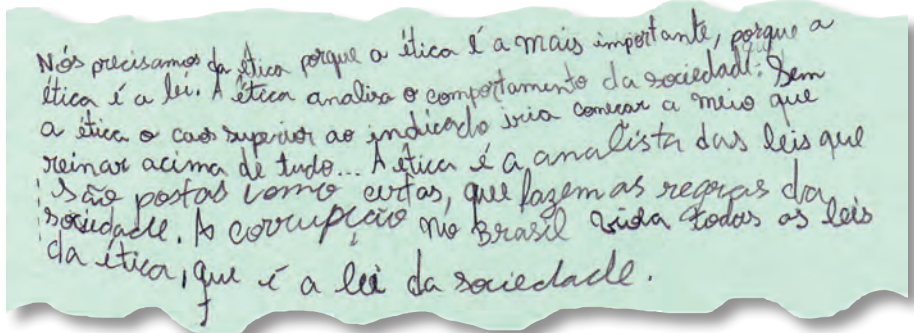 Nós precisamos da ética porque a ética é a mais importante, porque a
ética é a lei. A ética analisa o comportamento da sociedade: Sem
a ética o caos superior ao indicado iria começar a meio que
reinar acima de tudo... A ética é a analista das leis que
são postas como certas, que fazem as regras da
sociedade. A corrupção no Brasil viola todas as leis
da ética, que é a lei da sociedade.